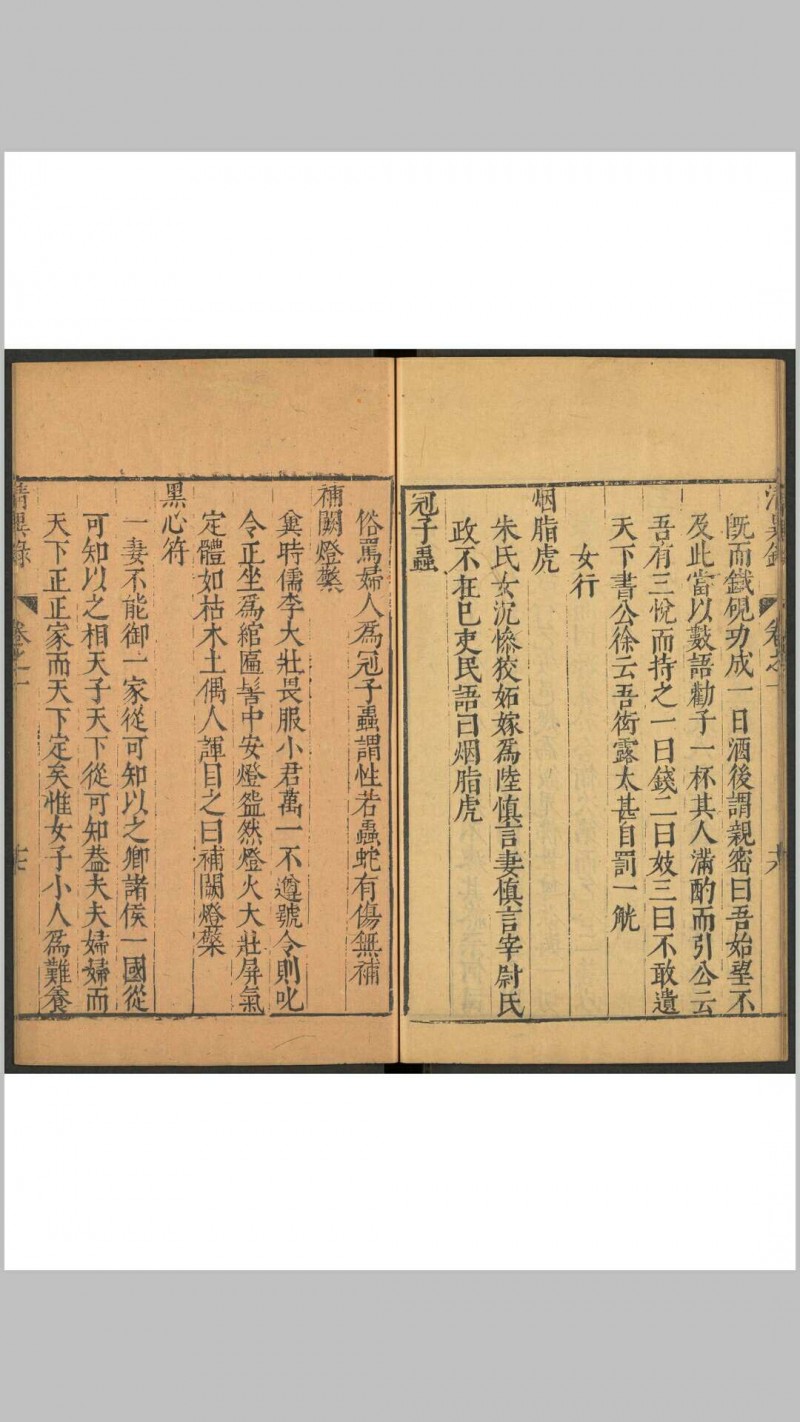 清異錄 卷之一 十六
旣而鐵硯功成一日酒後謂親密曰吾始望不
及此當以數語勸子一杯其人滿酌而引公云
吾有三悅而持之一曰錢二曰妓三曰不敢遺
天下書公徐云吾衒露太甚自罰一觥
女行
烟脂虎
朱氏女沉慘狡妬嫁爲陸慎言妻慎言宰尉氏
政不在己吏民語曰烟脂虎
冠子蟲
俗罵婦人爲冠子蟲謂性若蟲蛇有傷無補
補闕燈檠
冀時儒李大壯畏服小君萬一不遵號令則叱
令正坐爲綰匾髻中安燈盌然燈火大壯屏氣
定體如枯木土偶人諢目之曰補闕燈檠
黑心符
一妻不能御一家從可知以之卿諸侯一國從
可知以之相天子天下從可知葢夫夫婦婦而
天下正正家而天下定矣惟女子小人爲難養
清異錄 卷之一